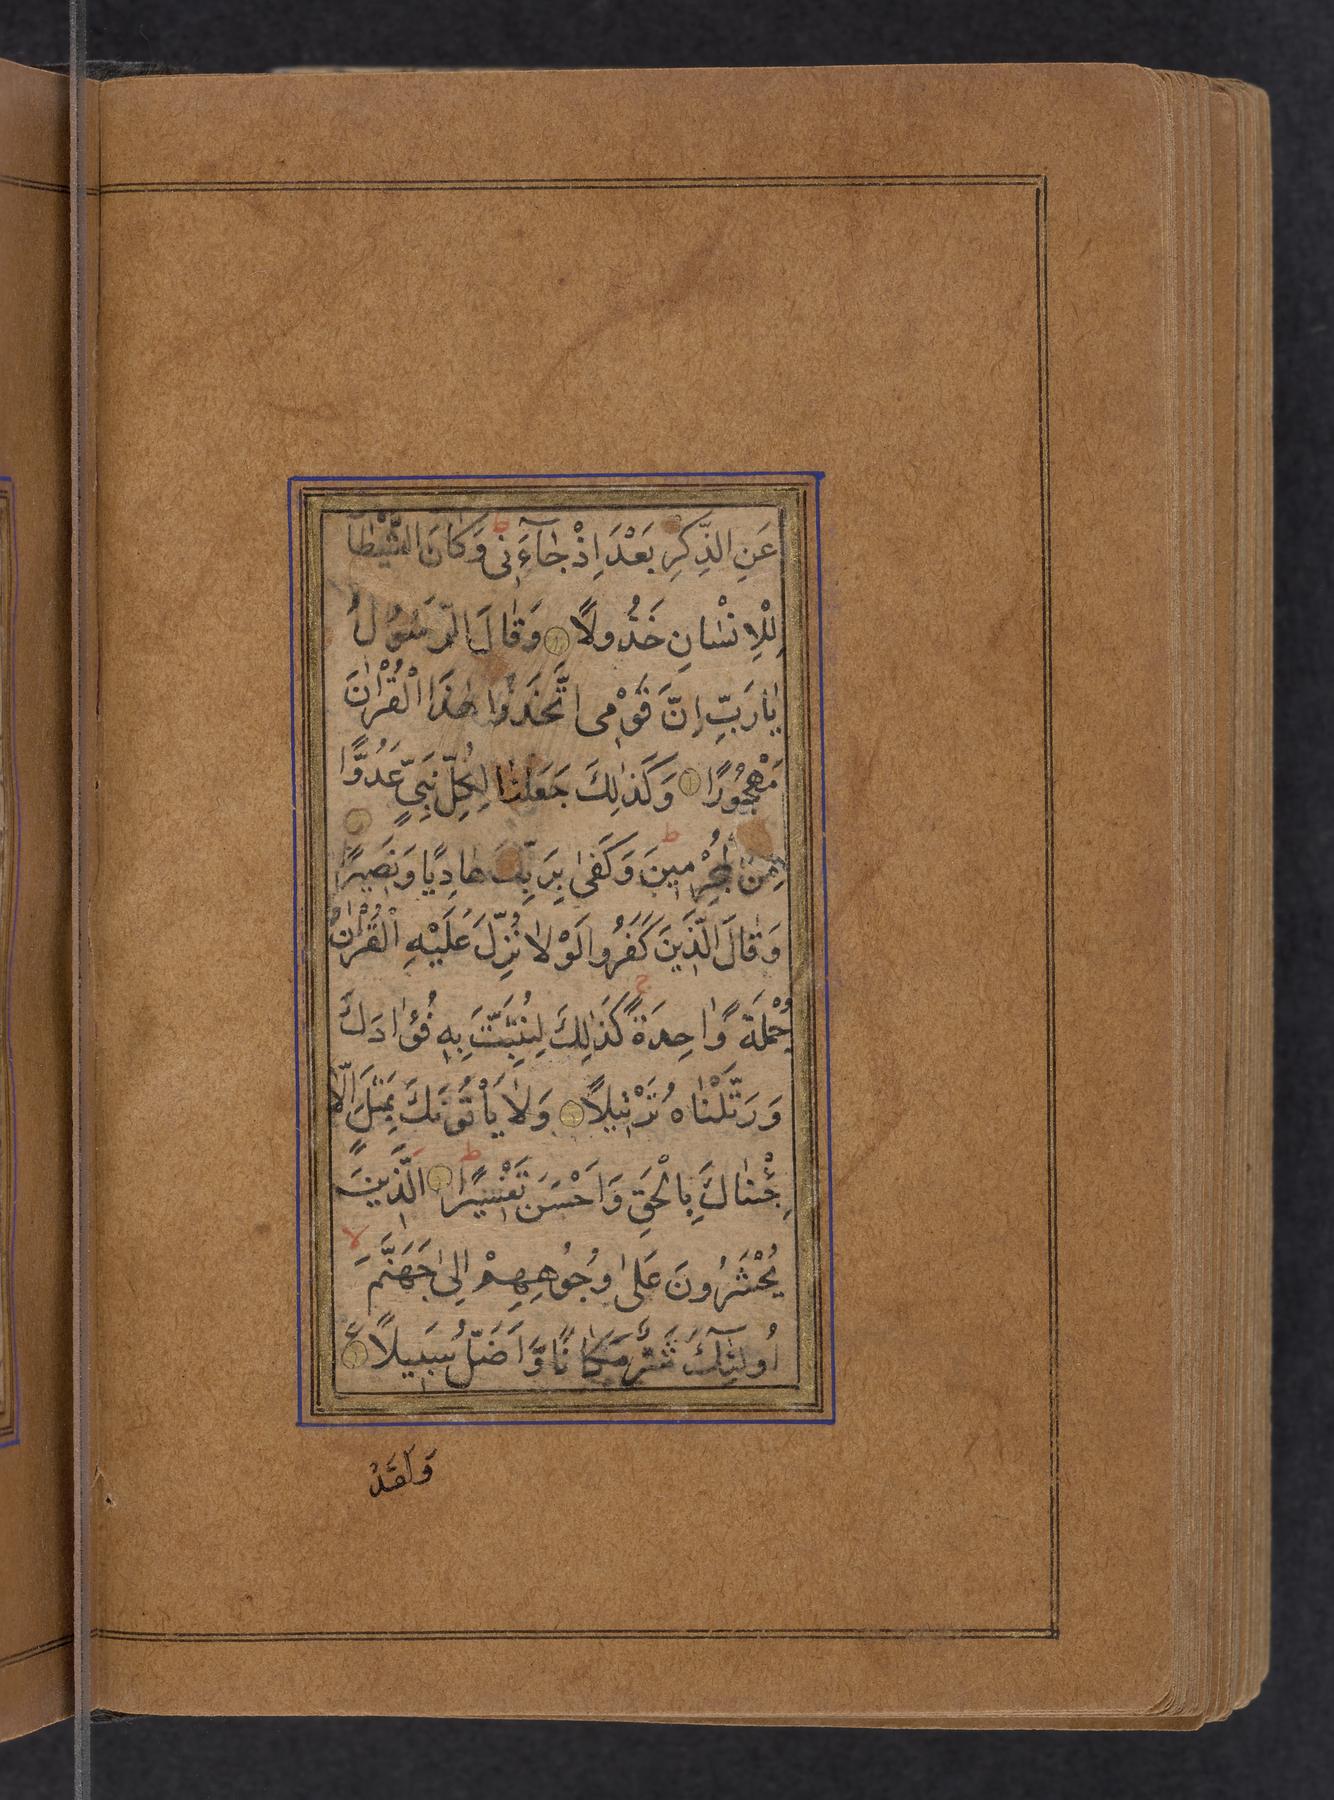 عَنِ الذِّكْرِ بَعْدَ اِذْ جٰٓاءَنٖى ط وَكٰانَ الشَّيْطٰا
لِلْاِنْسٰانِ خَذُولًا وَقٰالَ الرَّسُولُ
يٰارَبِّ اِنَّ قَوْمِى اتَّخَذُوا هٰذَا الْقُرْاٰنَ
مَهْجُورًا وَكَذٰلِكَ جَعَلْنٰا لِكُلِّ نَبِىٍّ عَدُوًّا
مِنَ الْمُجْرِمينَ ط وَكَفىٰ بِرَبِّكَ هٰادِيًا وَنَصيرًا
وَقٰالَ الَّذينَ كَفَرُوا لَوْلٰا نُزِّلَ عَلَيْهِ الْقُرْاٰنُ
جُمْلَةً وٰاحِدَةً ج كَذٰلِكَ لِنُثَبِّتَ بِهٖ فُؤٰادَكَ
وَرَتَّلْنٰاهُ تَرْتيلًا وَلٰا يَأْتُونَكَ بِمَثَلٍ اِلّٰا
جِئْنٰاكَ بِالْحَقِّ وَاَحْسَنَ تَفْسيرًا ط اَلَّذينَ
يُحْشَرُونَ عَلىٰ وُجُوهِهِمْ اِلىٰ جَهَنَّمَ لا
اُولٰٓئِكَ شَرٌّ مَكٰانًا وَاَضَلُّ سَبيلًا ع
وَلَقَدْ